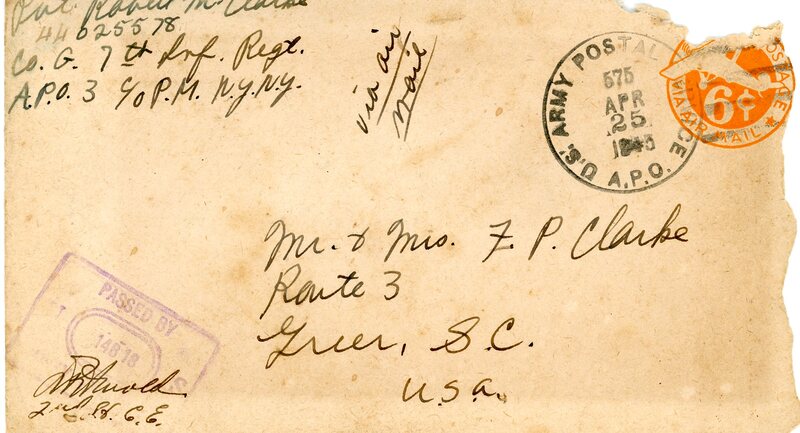 Pvt. Robert M. Clarke
44025578
Co. G. 7th Inf. Regt.
A.P.O. 3 c/o P.M. N.Y. N.Y.
Via air
mail
U.S. ARMY POSTAL
A.P.O.
575
APR
25
1945
POSTAGE
6¢
VIA AIR MAIL
Mr. & Mrs. F. P. Clarke
Route 3
Greer, S.C.
U.S.A.
PASSED BY
S
2nd